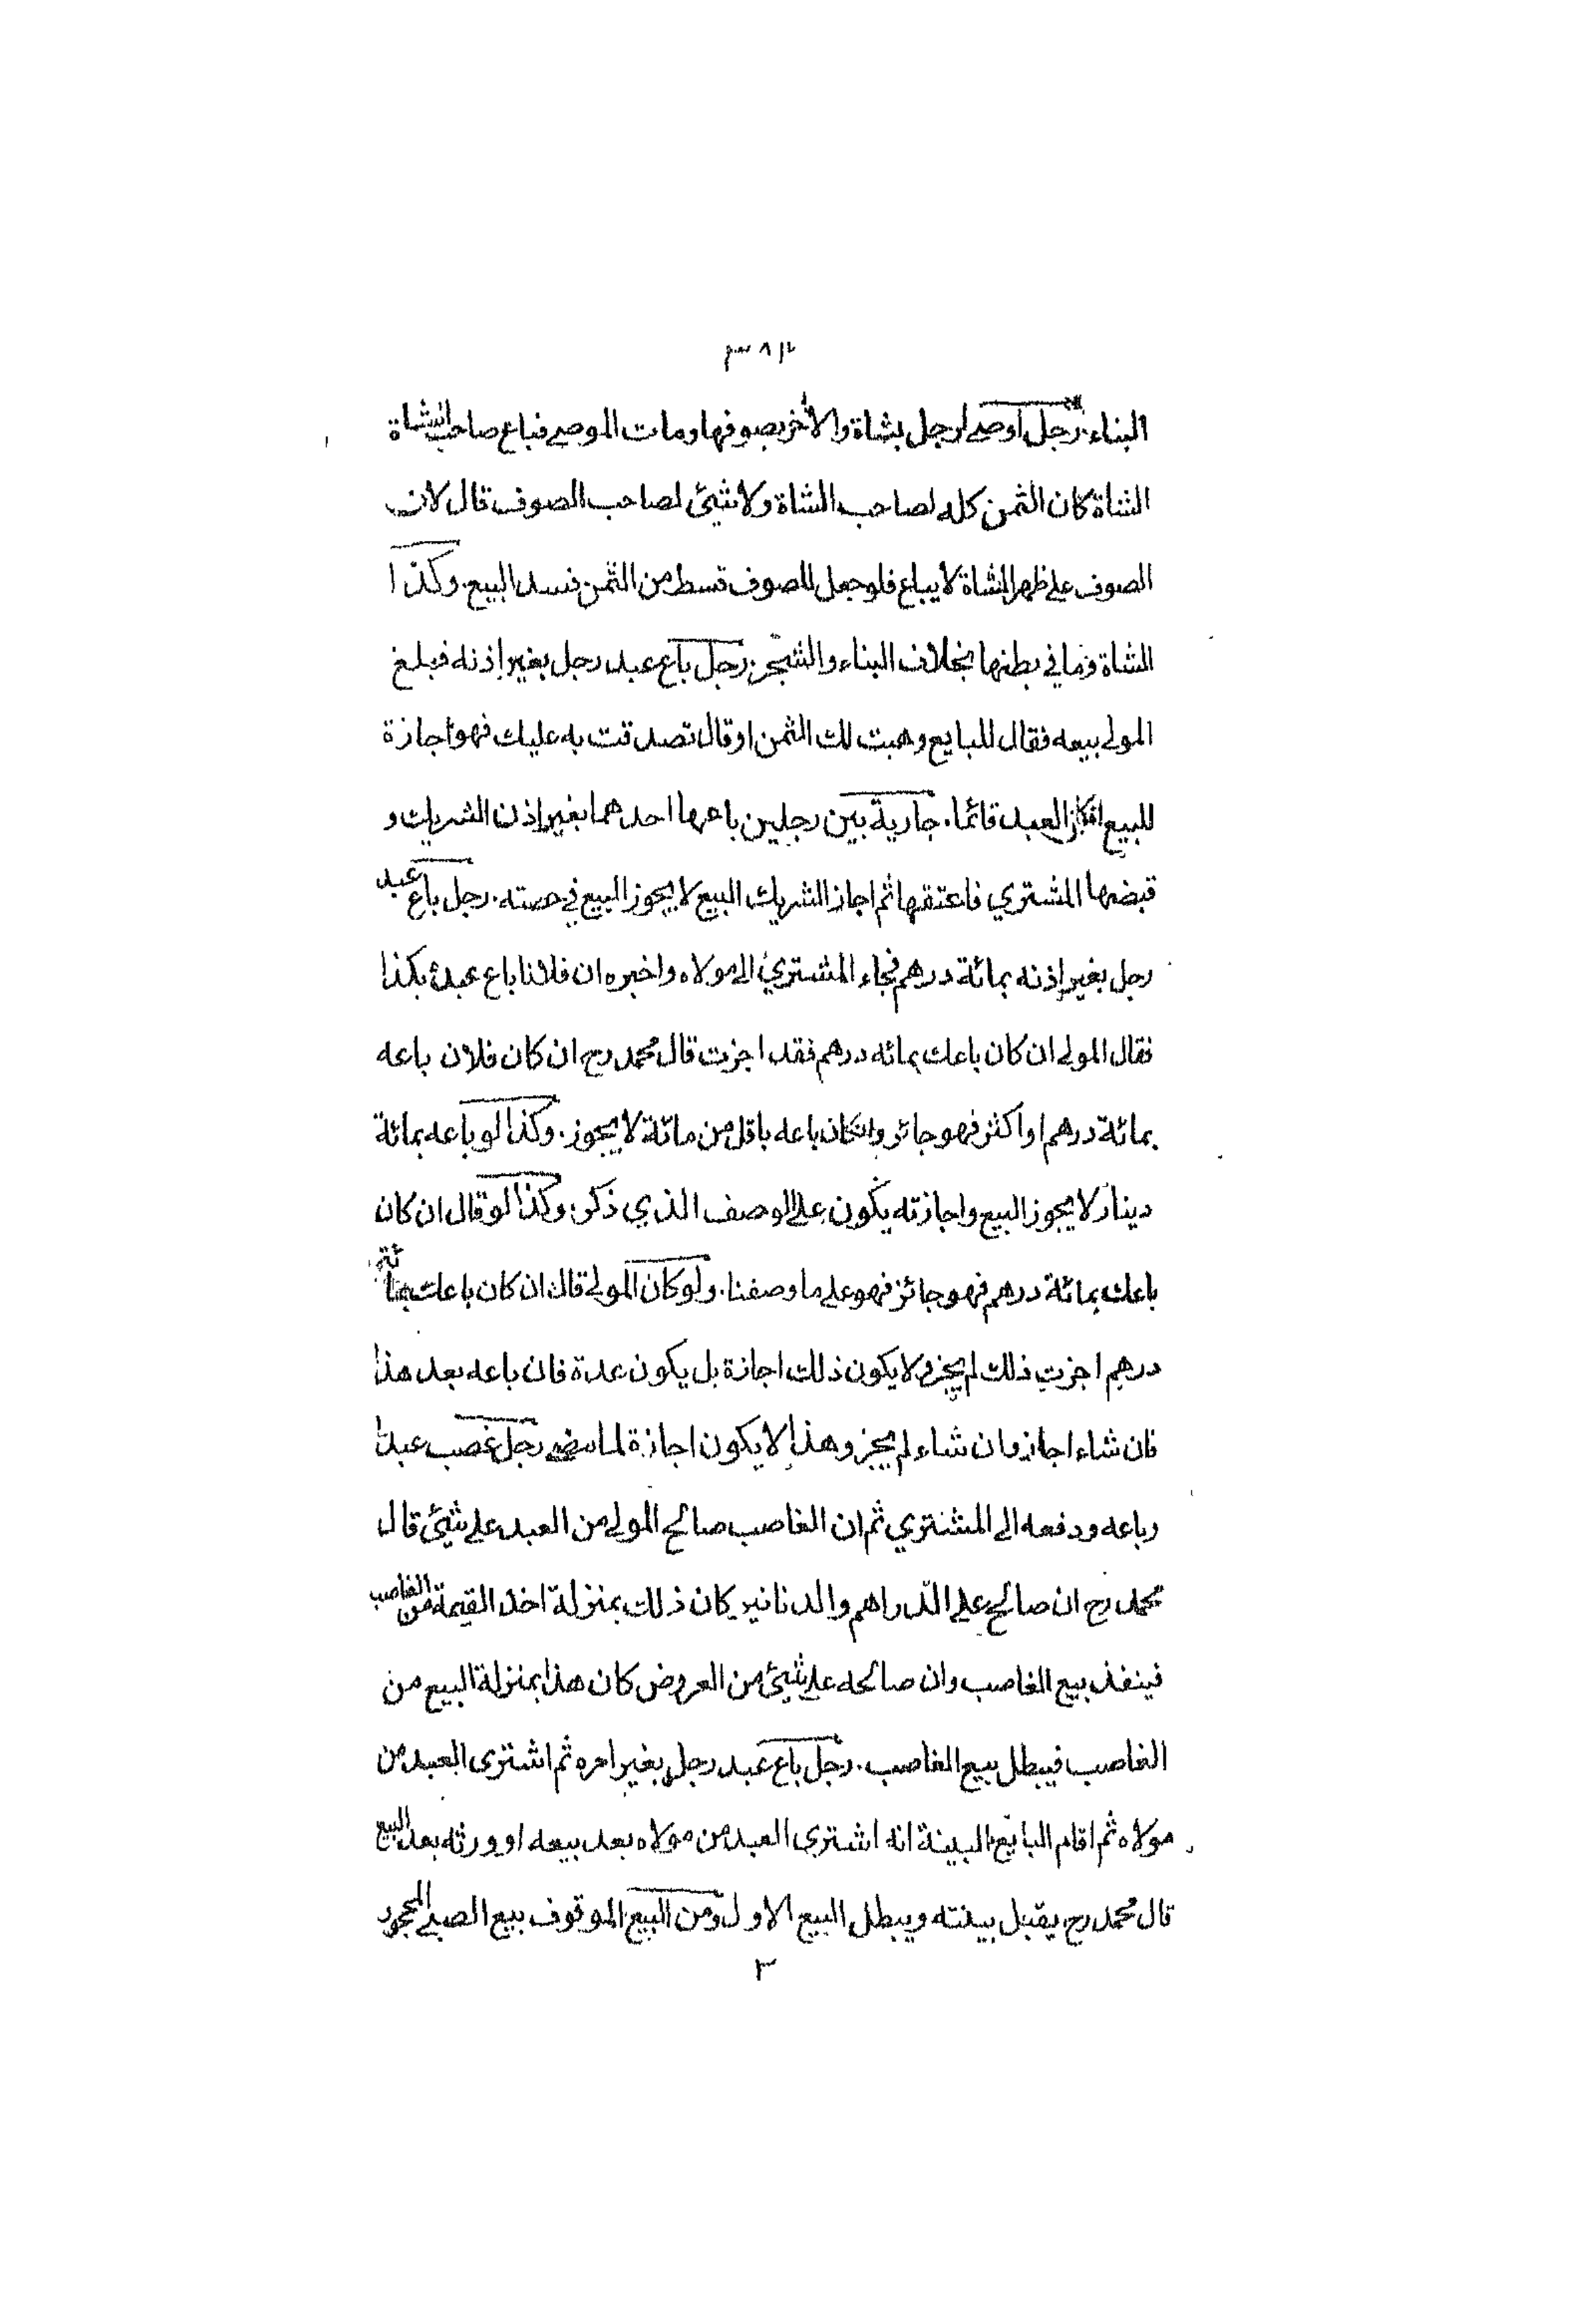 ٣٨٢
البناء. رجل اوصى لرجل بشاة والآخر بصوفها ومات الموصى فباع صاحب الشاة
الشاة كان الثمن كله لصاحب الشاة ولا شيئ لصاحب الصوف قال لان
الصوف على ظهر الشاة لا يباع فلو جعل للصوف قسط من الثمن فسد البيع. وكذا
الشاة وما في بطنها بخلاف البناء والشجر. رجل باع عبد رجل بغير اذنه فبلغ
المولى بيعه فقال للبايع وهبت لك الثمن او قال تصدقت به عليك فهو اجازة
للبيع انكان العبد قائما. جارية بين رجلين باعها احدهما بغير اذن الشريك و
قبضها المشتري فاعتقها ثم اجاز الشريك البيع لا يجوز البيع في حصته. رجل باع عبد
رجل بغير اذنه بمائة درهم فجاء المشتري الى مولاه واخبره ان فلانا باع عبدك بكذا
فقال المولى ان كان باعك بمائه درهم فقد اجزت قال محمد رح ان كان فلان باعه
بمائة درهم او اكثر فهو جائز وانكان باعه باقل من مائة لا يجوز. وكذا لو باعه بمائة
دينار لا يجوز البيع واجازته يكون على الوصف الذي ذكر. وكذا لو قال ان كان
باعك بمائة درهم فهو جائز فهو على ما وصفنا. ولو كان المولى قال ان كان باعك بمائة
درهم اجزت ذلك لم يجز ولا يكون ذلك اجازة بل يكون عدة فان باعه بعد هذا
فان شاء اجاز وان شاء لم يجز وهذا لا يكون اجازة لما مضى رجل غصب عبدا
وباعه ودفعه الى المشتري ثم ان الغاصب صالح المولى من العبد على شيئ قال
محمد رح ان صالح على الدراهم والدنانير كان ذلك بمنزلة اخذ القيمة من الغاصب
فينفذ بيع الغاصب وان صالحه على شيئ من العروض كان هذا بمنزلة البيع من
الغاصب فيبطل بيع الغاصب. رجل باع عبد رجل بغير امره ثم اشترى العبد من
مولاه ثم اقام البايع البينة انه اشترى العبد من مولاه بعد بيعه او ورثه بعد البيع
قال محمد رح يقبل بينته ويبطل البيع الاول ومن البيع الموقوف بيع الصبي المحجور
٣